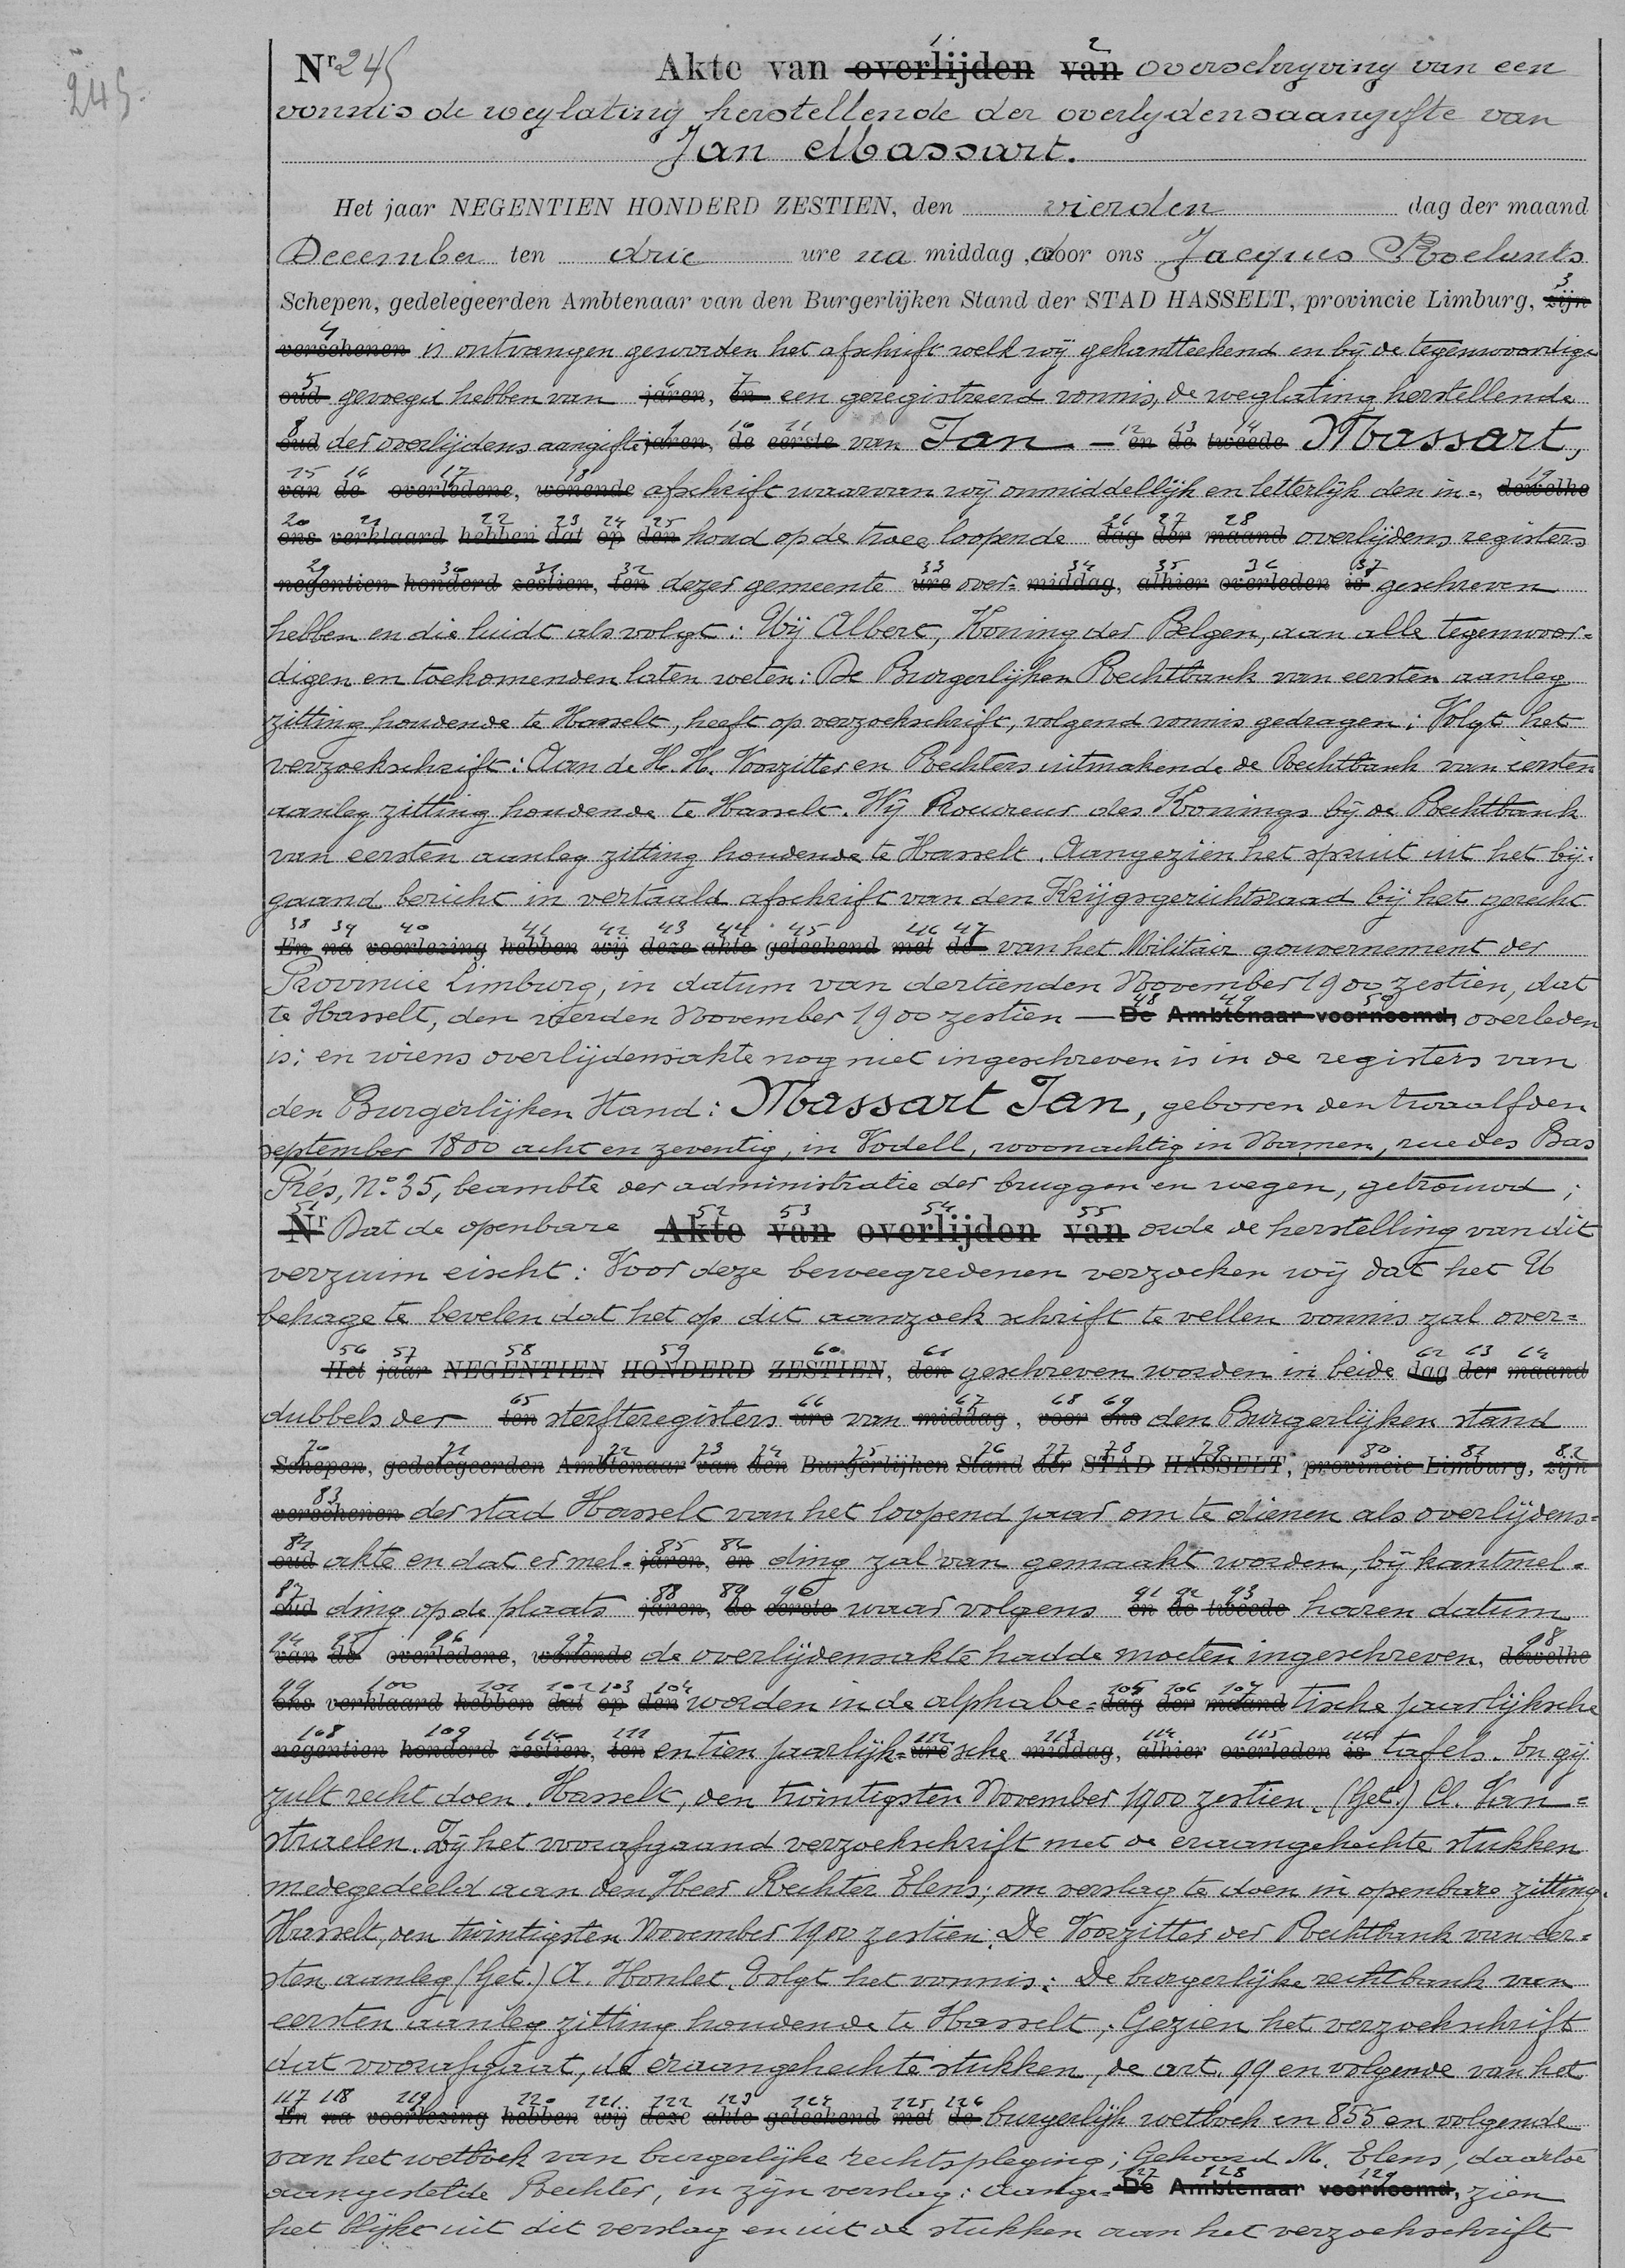 245.
Nr 245 Akte van overlijden van overschryving van een
vonnis de weglating herstellende der overlydensaangifte van
Jan Massart.
Het jaar NEGENTIEN HONDERD ZESTIEN, den vierden dag der maand
December ten drie ure na middag, door ons Jacques Roelants
Schepen, gedelegeerden Ambtenaar van den Burgerlijken Stand der STAD HASSELT, provincie Limburg, zijn
verschenen is ontvangen geworden het afschrift welk wij gekantteekend en bij de tegenwoordige
oud gevoegd hebben van jaren, en een geregistreerd vonnis, de weglating herstellende
oud der overlijdens aangifte jaren, de eerste van Jan — en de tweede Massart,
van de overledene, wonende afschrift waarvan wij onmiddellijk en letterlijk den in-, dewelke
ons verklaard hebben dat op den houd op de twee loopende dag der maand overlijdens registers
negentien honderd zestien, ten dezer gemeente ure over- middag, alhier overleden is geschreven
hebben en die luidt als volgt: Wij Albert, Koning der Belgen, aan alle tegenwoor=
digen en toekomenden laten weten: De Burgerlijken Rechtbank van eersten aanleg
zitting houdende te Hasselt, heeft op verzoekschrift, volgend vonnis gedragen: Volgt het
verzoekschrift: Aan de H. H. Voorzitter en Rechters uitmakende de Rechtbank van eersten
aanleg zitting houdende te Hasselt. Wij Procureur des Konings bij de Rechtbank
van eersten aanleg zitting houdende te Hasselt. Aangezien het spruit uit het bij-
gaand bericht in vertaald afschrift van den Krijgsgerichtsraad bij het gerecht
En na voorlezing hebben wij deze akte geteekend met de van het Militair gouvernement der
Provincie Limburg, in datum van dertienden November 1900 zestien, dat
te Hasselt, den vierden November 1900 zestien — De Ambtenaar voornoemd, overleden
is; en wiens overlijdensakte nog niet ingeschreven is in de registers van
den Burgerlijken Stand: Massart Jan, geboren den twaalfden
september 1800 acht en zeventig, in Vodell, woonachtig in Namen, rue des Bas
Prés, No 35, beambte der administratie der bruggen en wegen, getrouwd;
Nr Dat de openbare Akte van overlijden van orde de herstelling van dit
verzuim eischt: Voor deze beweegredenen verzoeken wij dat het U
behage te bevelen dat het op dit aanzoek schrift te vellen vonnis zal over=
Het jaar NEGENTIEN HONDERD ZESTIEN, den geschreven worden in beide dag der maand
dubbels der ten sterfteregisters ure van middag, voor ons den Burgerlijken stand
Schepen, gedelegeerden Ambtenaar van den Burgerlijken Stand der STAD HASSELT, provincie Limburg, zijn
verschenen der stad Hasselt van het loopend jaar om te dienen als overlijdens=
oud akte en dat er mel- jaren, en ding zal van gemaakt worden, bij kantmel=
oud ding op de plaats jaren, de eerste waar volgens en de tweede haren datum
van de overledene, wonende de overlijdensakte hadde moeten ingeschreven, dewelke
ons verklaard hebben dat op den worden in de alphabe- dag der maand tische jaarlijksche
negentien honderd zestien, ten en tien jaarlijk- ure sche middag, alhier overleden is tafels. En gij
zult recht doen. Hasselt, den twintigsten November 1900 zestien. (Get.) Cl. Van=
straelen. Zij het voorafgaand verzoekschrift met de eraangehechte stukken
medegedeeld aan den Heer Rechter Elens; om verslag te doen in openbare zitting.
Hasselt, den twintigsten November 1900 zestien. De Voorzitter der Rechtbank van eer=
sten aanleg (Get.) A. Honlet. Volgt het vonnis: De burgerlijke rechtbank van
eersten aanleg zitting houdende te Hasselt; Gezien het verzoekschrift
dat voorafgaat, de eraangehechte stukken, de art. 99 en volgende van het
En na voorlezing hebben wij deze akte geteekend met de burgerlijk wetboek en 855 en volgende
van het wetboek van burgerlijke rechtspleging; Gehoord M. Elens, daartoe
aangestelde Rechter, in zijn verslag: Aange- De Ambtenaar voornoemd, zien
het blijkt uit dit verslag en uit de stukken aan het verzoekschrift